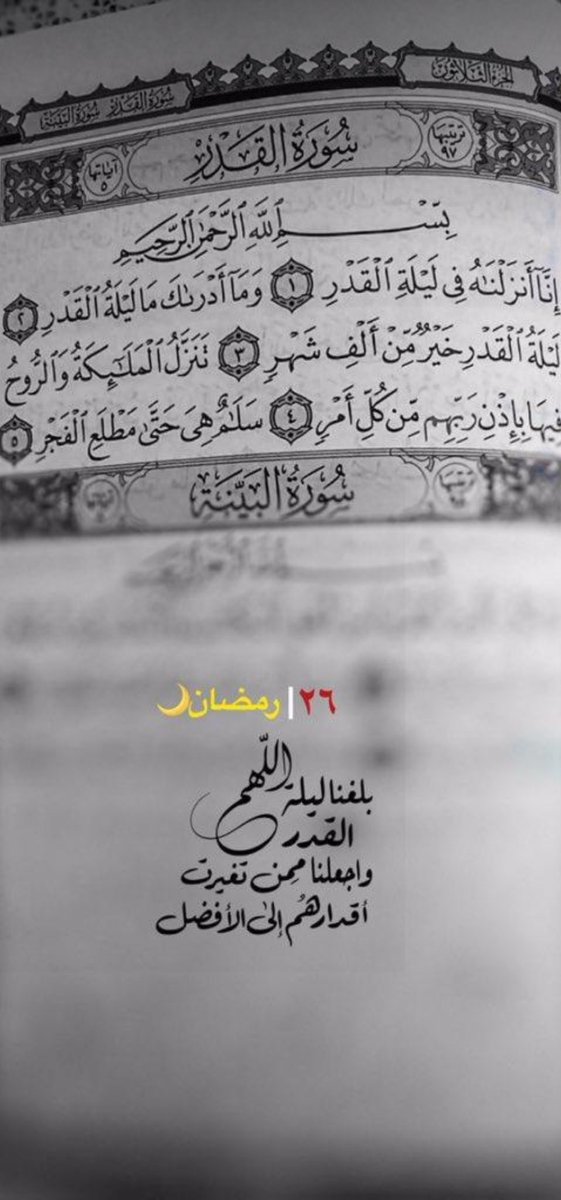 الجزء الثلاثون
سورة القدر سورة البينة
ترتيبها ٩٧ سُورَةُ القَدْرِ آياتها ٥
بِسْمِ ٱللَّهِ ٱلرَّحْمَٰنِ ٱلرَّحِيمِ
إِنَّآ أَنزَلْنَٰهُ فِى لَيْلَةِ ٱلْقَدْرِ ١ وَمَآ أَدْرَىٰكَ مَا لَيْلَةُ ٱلْقَدْرِ ٢
لَيْلَةُ ٱلْقَدْرِ خَيْرٌ مِّنْ أَلْفِ شَهْرٍ ٣ تَنَزَّلُ ٱلْمَلَٰٓئِكَةُ وَٱلرُّوحُ
فِيهَا بِإِذْنِ رَبِّهِم مِّن كُلِّ أَمْرٍ ٤ سَلَٰمٌ هِىَ حَتَّىٰ مَطْلَعِ ٱلْفَجْرِ ٥
سُورَةُ البَيِّنَة
٢٦ | رمضان
اللهم بلغنا ليلة
القدر
واجعلنا ممن تغيرت
أقدارهم إلى الأفضل